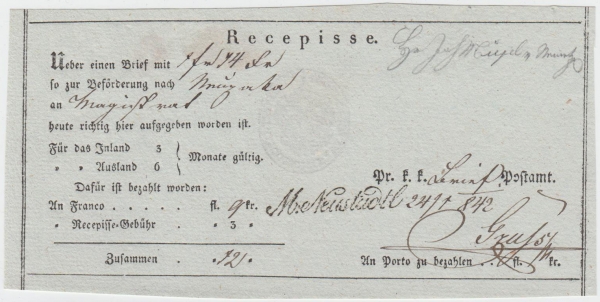 Recepisse.
Ueber einen Brief mit
so zur Beförderung nach
an Magistrat
heute richtig hier aufgegeben worden ist.
Für das Inland 3
„ „ Ausland 6 } Monate gültig.
Dafür ist bezahlt worden:
An Franco . . . . . fl. 9 kr.
„ Recepisse-Gebühr . „ 3 „
Zusammen . 12
Pr. k. k. Brief Postamt.
M. Neustadtl 24/1 842
An Porto zu bezahlen . . fl. kr.